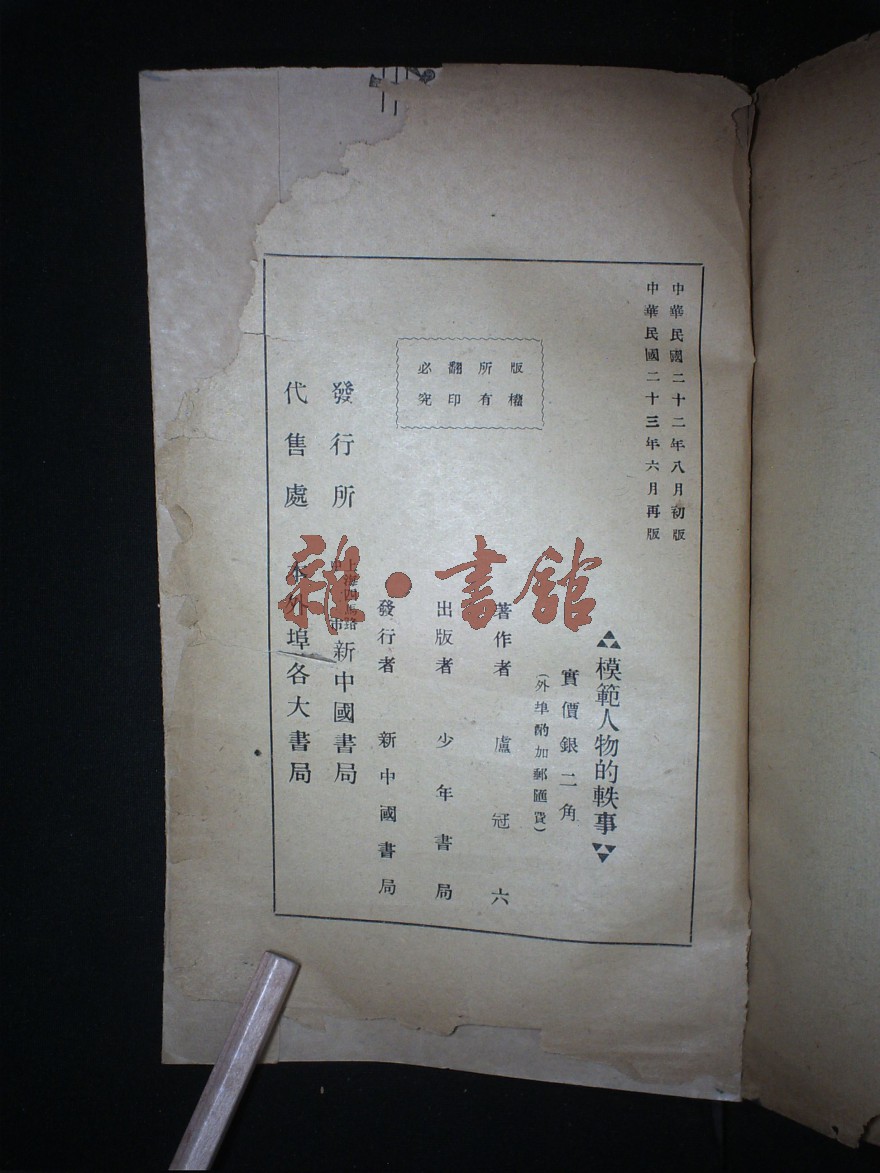 中華民國二十二年八月初版
中華民國二十三年六月再版
模範人物的軼事
實價銀二角
(外埠酌加郵匯費)
版權
所有
翻印
必究
著作者 盧冠六
出版者 少年書局
發行者 新中國書局
發行所 上海四馬路
新中國書局
代售處 本外埠各大書局
雜·書館